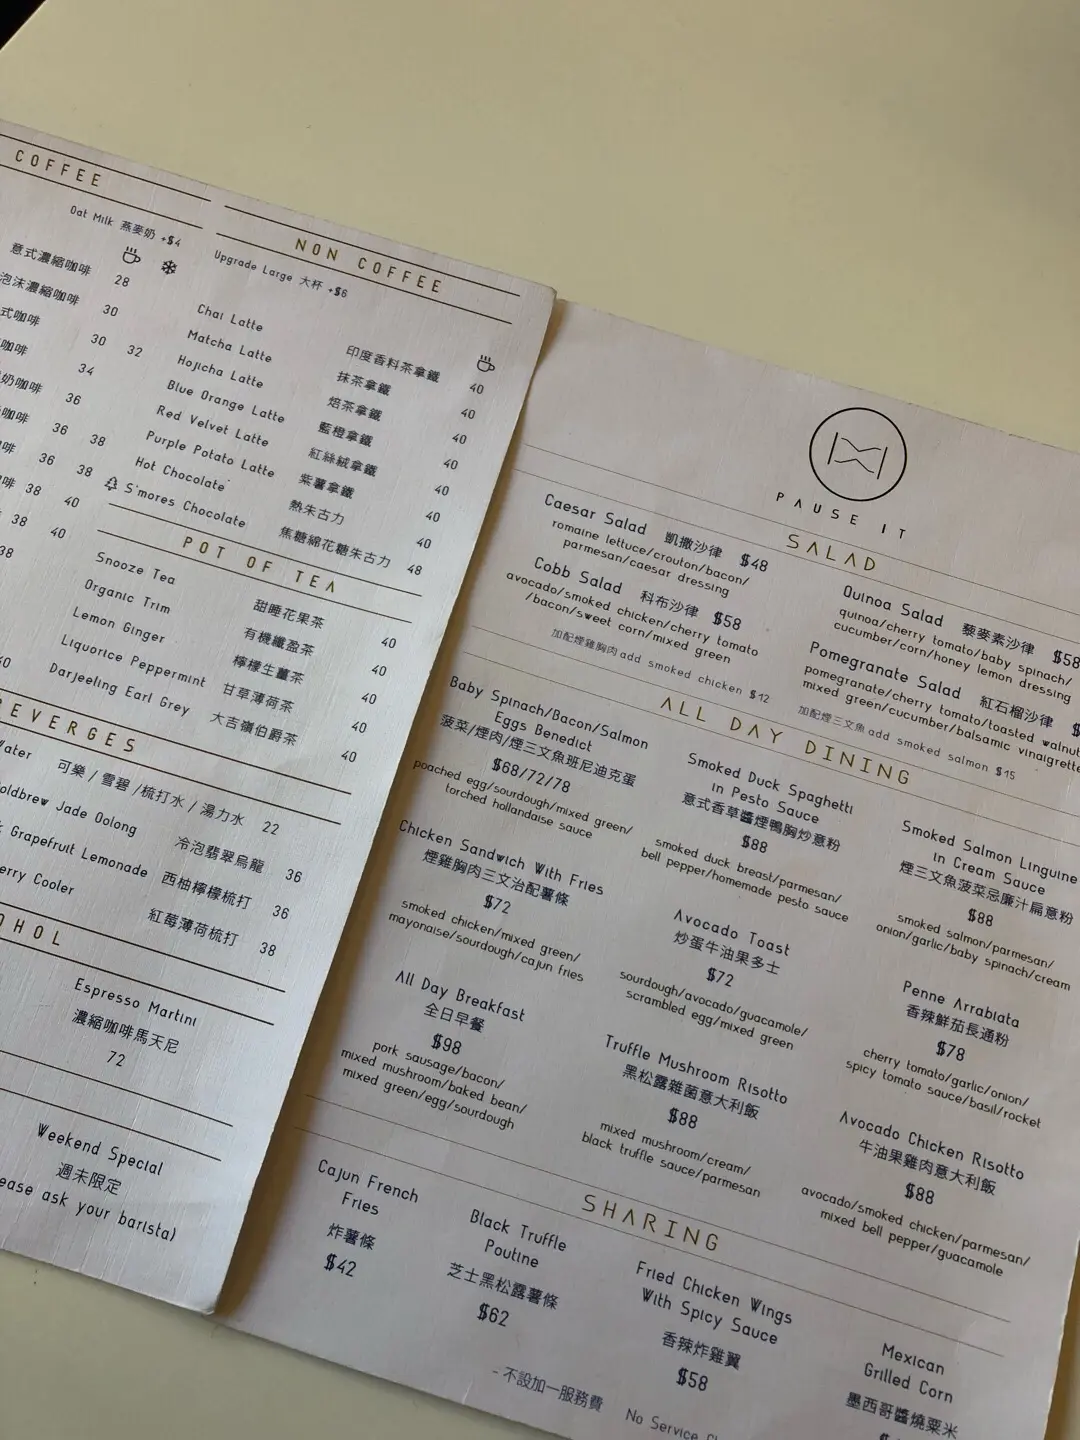 COFFEE
Oat Milk 燕麥奶 +$4
意式濃縮咖啡 28
泡沫濃縮咖啡 30
式咖啡 30 32
咖啡 34
奶咖啡 36
咖啡 36 38
啡 36 38
啡 38 40
38 40
38
40
NON COFFEE
Upgrade Large 大杯 +$6
Chai Latte 印度香料茶拿鐵 40
Matcha Latte 抹茶拿鐵 40
Hojicha Latte 焙茶拿鐵 40
Blue Orange Latte 藍橙拿鐵 40
Red Velvet Latte 紅絲絨拿鐵 40
Purple Potato Latte 紫薯拿鐵 40
Hot Chocolate 熱朱古力 40
S'mores Chocolate 焦糖綿花糖朱古力 48
POT OF TEA
Snooze Tea 甜睡花果茶 40
Organic Trim 有機纖盈茶 40
Lemon Ginger 檸檬生薑茶 40
Liquorice Peppermint 甘草薄荷茶 40
Darjeeling Earl Grey 大吉嶺伯爵茶 40
EVERGES
Water 可樂 / 雪碧 / 梳打水 / 湯力水 22
oldbrew Jade Oolong 冷泡翡翠烏龍 36
Grapefruit Lemonade 西柚檸檬梳打 36
erry Cooler 紅莓薄荷梳打 38
OHOL
Espresso Martini
濃縮咖啡馬天尼
72
Weekend Special
週末限定
ease ask your barista)
PAUSE IT
SALAD
Caesar Salad 凱撒沙律 $48
romaine lettuce/crouton/bacon/
parmesan/caesar dressing
Cobb Salad 科布沙律 $58
avocado/smoked chicken/cherry tomato
/bacon/sweet corn/mixed green
加配煙雞胸肉 add smoked chicken $12
Quinoa Salad 藜麥素沙律 $58
quinoa/cherry tomato/baby spinach/
cucumber/corn/honey lemon dressing
Pomegranate Salad 紅石榴沙律 $
pomegranate/cherry tomato/toasted walnut
mixed green/cucumber/balsamic vinaigrette
加配煙三文魚 add smoked salmon $15
ALL DAY DINING
Baby Spinach/Bacon/Salmon
Eggs Benedict
菠菜/煙肉/煙三文魚班尼迪克蛋
$68/72/78
poached egg/sourdough/mixed green/
torched hollandaise sauce
Chicken Sandwich With Fries
煙雞胸肉三文治配薯條
$72
smoked chicken/mixed green/
mayonaise/sourdough/cajun fries
All Day Breakfast
全日早餐
$98
pork sausage/bacon/
mixed mushroom/baked bean/
mixed green/egg/sourdough
Smoked Duck Spaghetti
in Pesto Sauce
意式香草醬煙鴨胸炒意粉
$88
smoked duck breast/parmesan/
bell pepper/homemade pesto sauce
Avocado Toast
炒蛋牛油果多士
$72
sourdough/avocado/guacamole/
scrambled egg/mixed green
Truffle Mushroom Risotto
黑松露雜菌意大利飯
$88
mixed mushroom/cream/
black truffle sauce/parmesan
Smoked Salmon Linguine
in Cream Sauce
煙三文魚菠菜忌廉汁扁意粉
$88
smoked salmon/parmesan/
onion/garlic/baby spinach/cream
Penne Arrabiata
香辣鮮茄長通粉
$78
cherry tomato/garlic/onion/
spicy tomato sauce/basil/rocket
Avocado Chicken Risotto
牛油果雞肉意大利飯
$88
avocado/smoked chicken/parmesan/
mixed bell pepper/guacamole
SHARING
Cajun French
Fries
炸薯條
$42
Black Truffle
Poutine
芝士黑松露薯條
$62
Fried Chicken Wings
With Spicy Sauce
香辣炸雞翼
$58
Mexican
Grilled Corn
墨西哥醬燒粟米
- 不設加一服務費
No Service